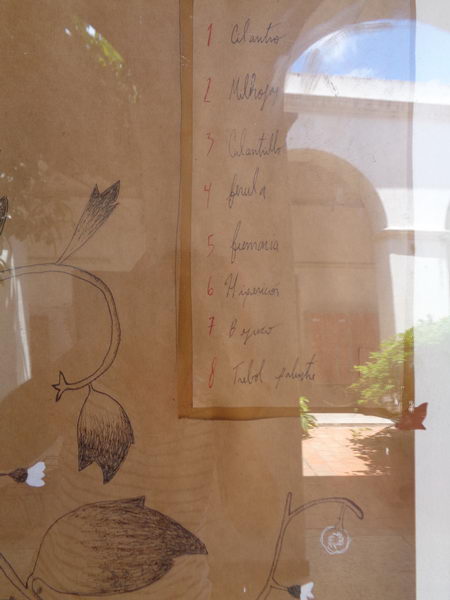 1 Cilantro
2 Milhojas
3 Culantrillo
4 ferula
5 fumaria
6 Hipericos
7 Bejuco
8 Trebol